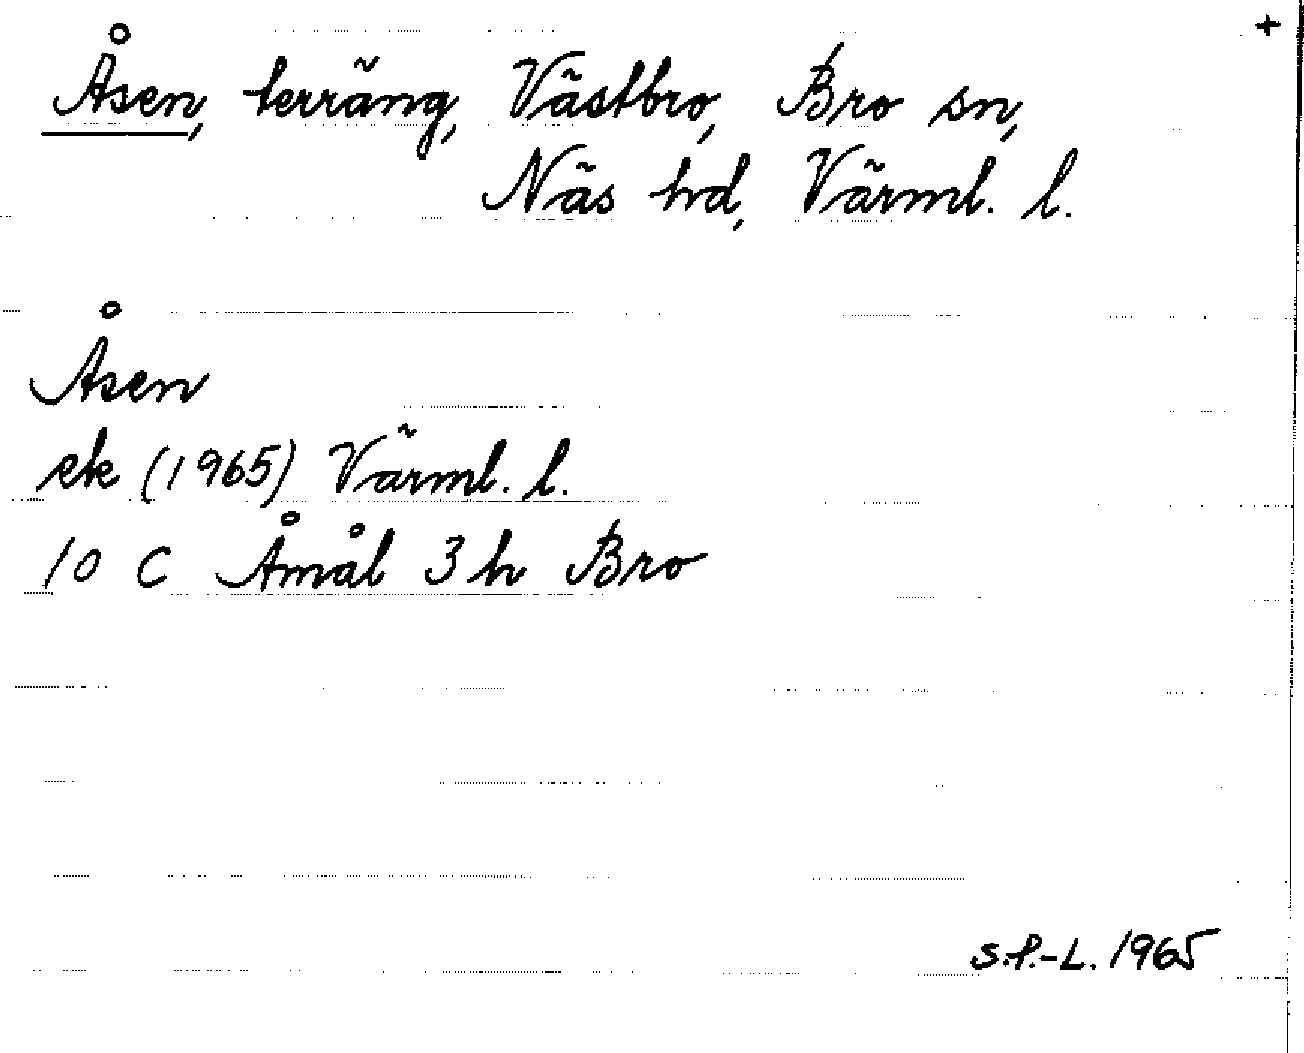 +
Åsen, terräng, Västbro, Bro sn,
Näs hd, Värml. l.
Åsen
ek (1965) Värml. l.
10 C Åmål 3 h Bro
S.P.-L. 1965